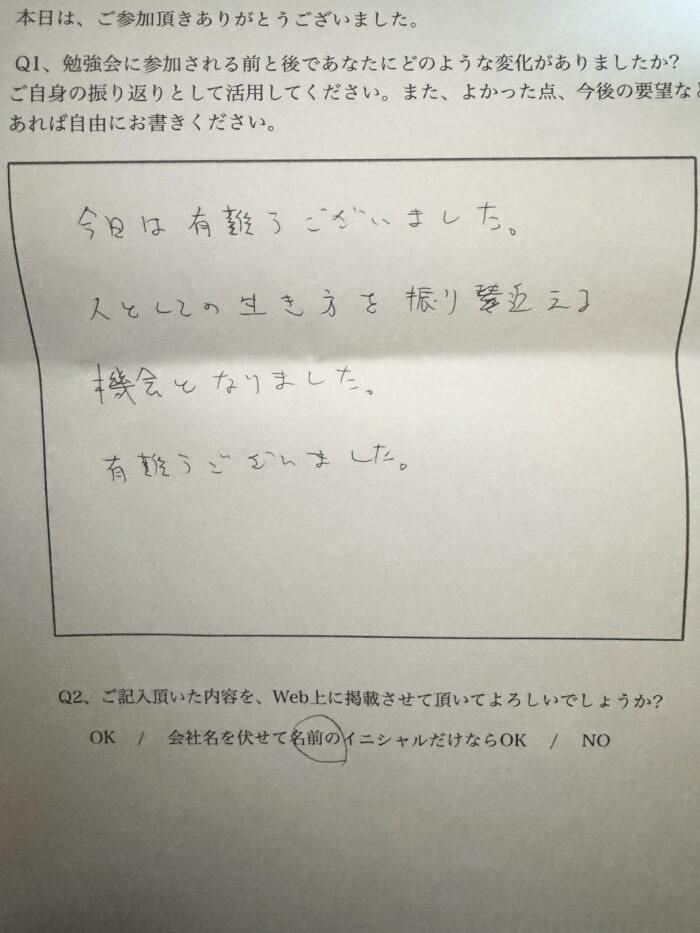 本日は、ご参加頂きありがとうございました。
Q1、勉強会に参加される前と後であなたにどのような変化がありましたか?
ご自身の振り返りとして活用してください。また、よかった点、今後の要望など
あれば自由にお書きください。
今日は有難うございました。
人としての生き方を振り返える
機会となりました。
有難うございました。
Q2、ご記入頂いた内容を、Web上に掲載させて頂いてよろしいでしょうか?
OK / 会社名を伏せて名前のイニシャルだけならOK / NO